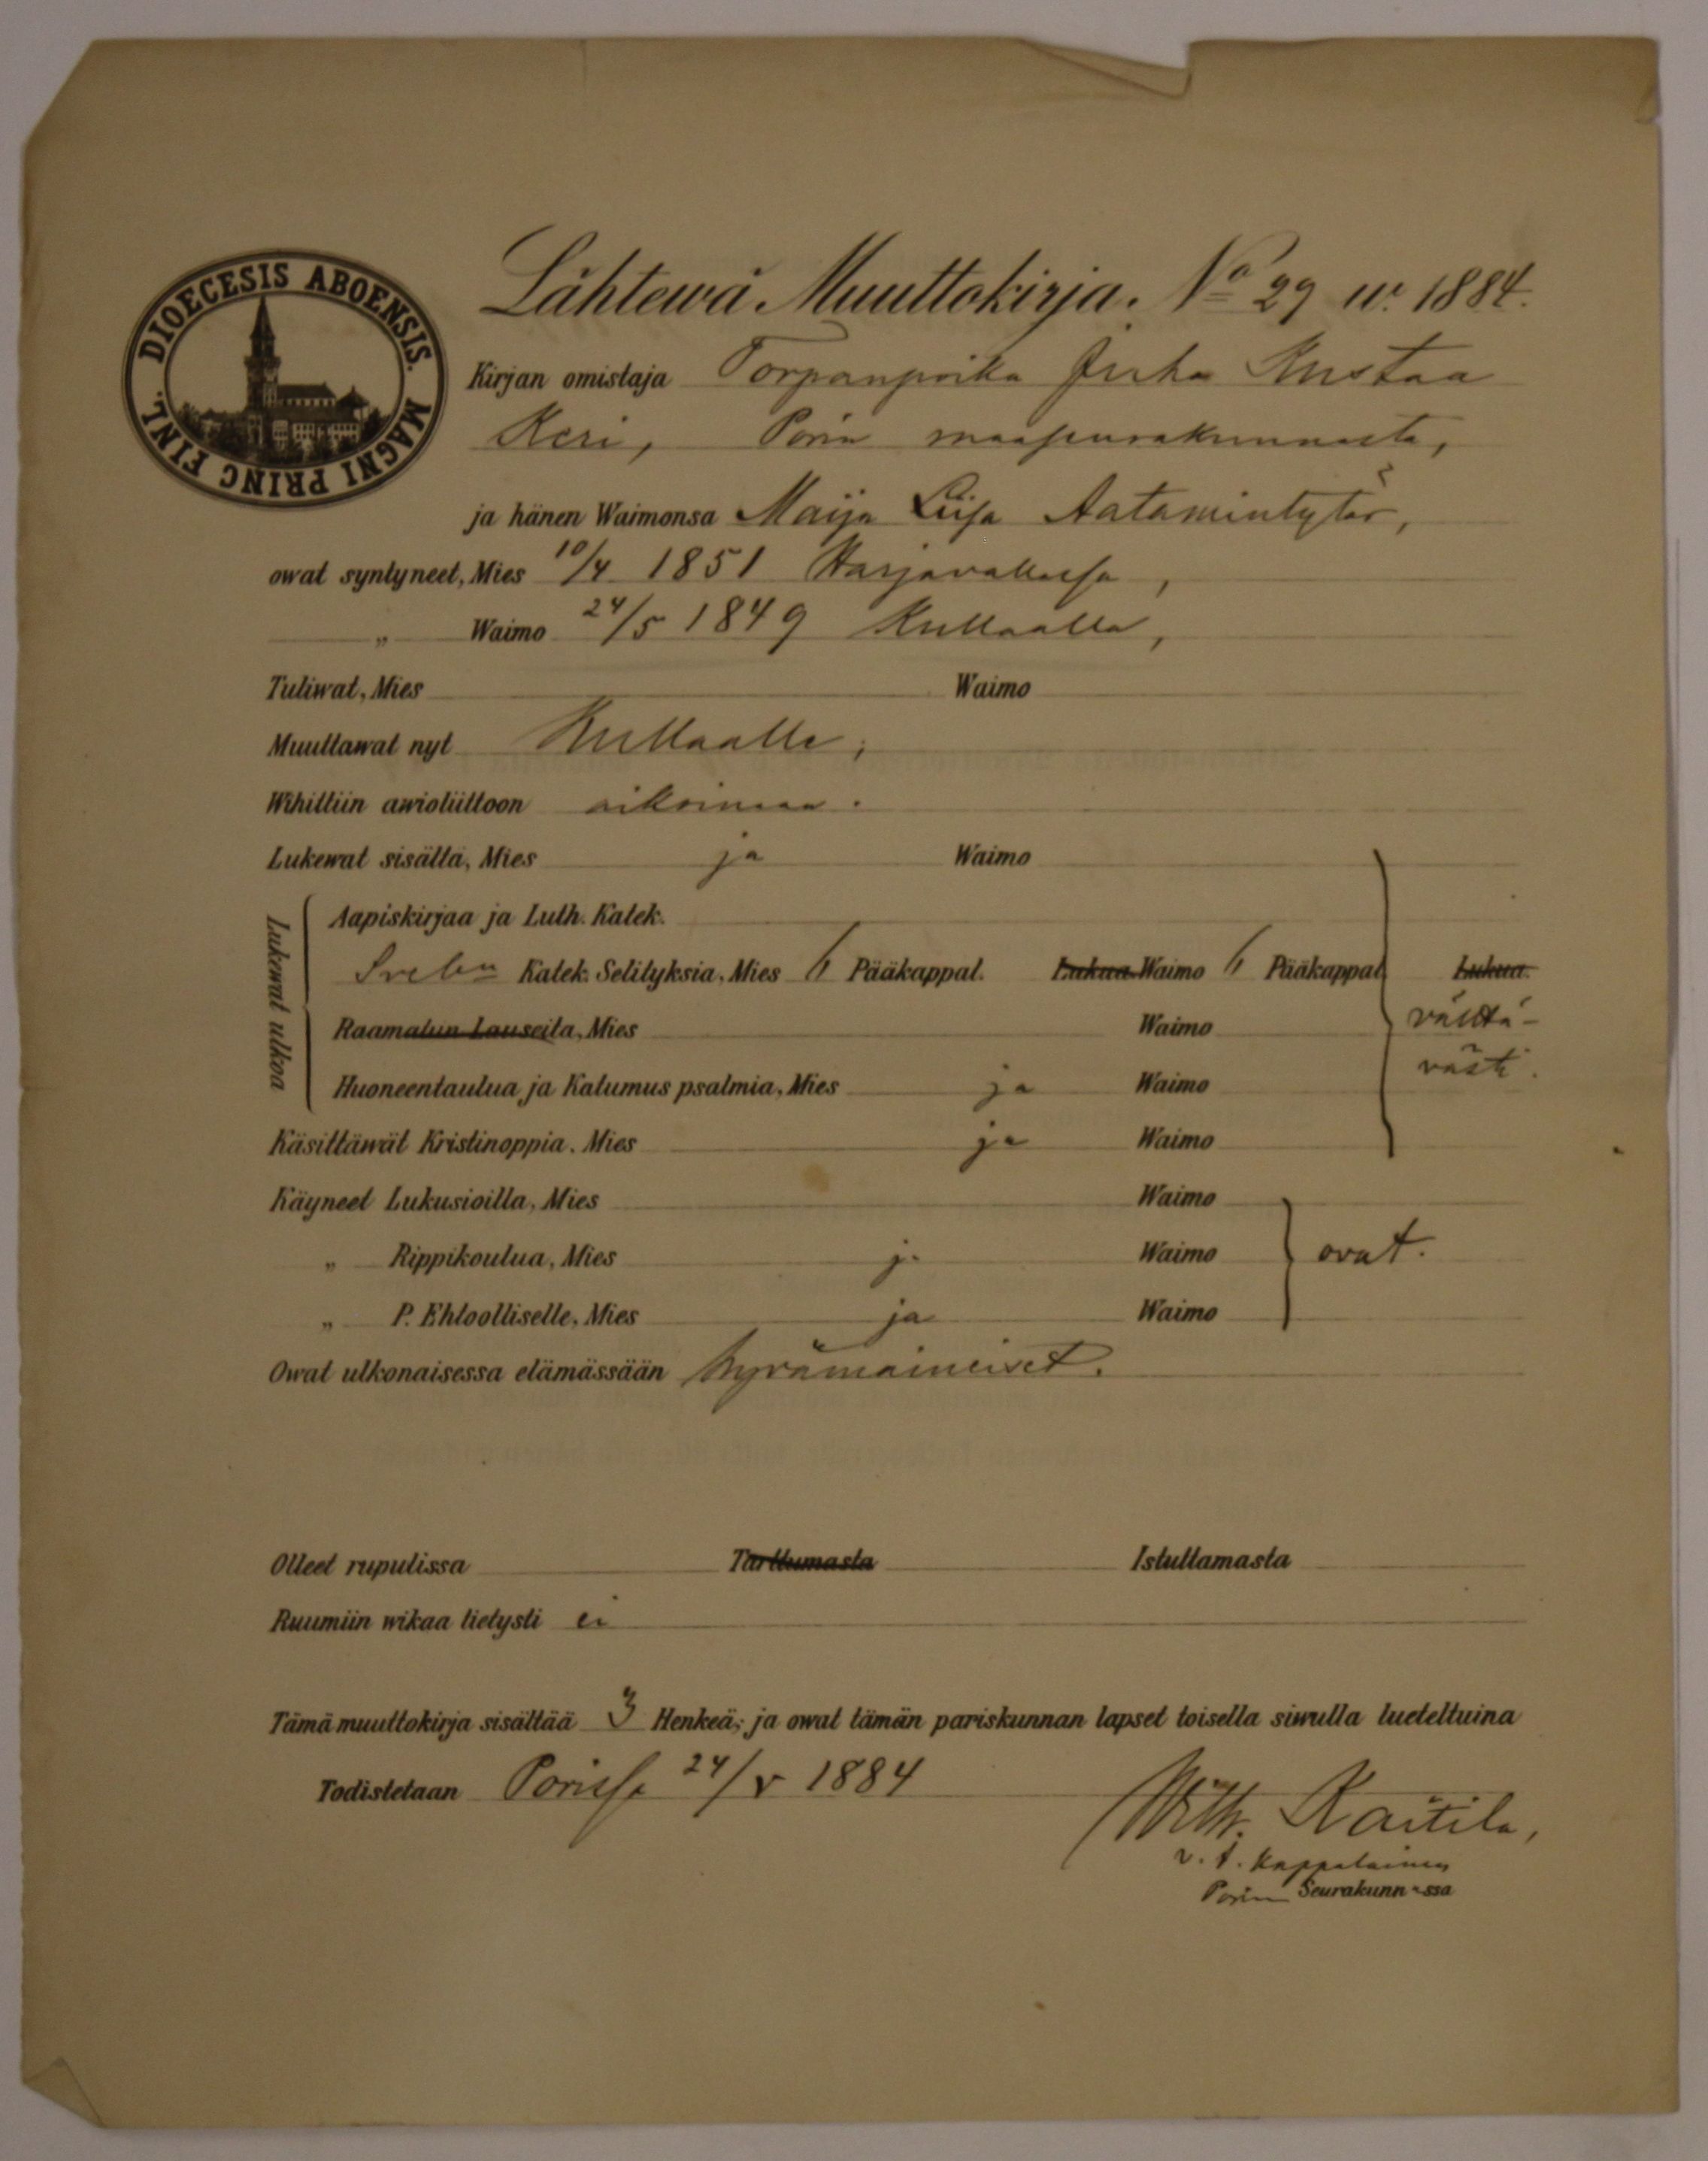 DIOECESIS ABOENSIS. MAGNI PRINC FINL.
Lähtewä Muuttokirja. No 29 w. 1884.
Kirjan omistaja Torpanpoika Juha Kustaa
Keri, Porin maaseurakunnasta,
ja hänen Waimonsa Maija Liisa Aatamintytär,
owat syntyneet, Mies 10/4 1851 Harjavallassa,
„ Waimo 24/5 1849 Kullaalla,
Tuliwat, Mies Waimo
Muuttawat nyt Kullaalle,
Wihittiin awioliittoon aikoinaan.
Lukewat sisältä, Mies ja Waimo
Lukewat ulkoa
Aapiskirjaa ja Luth. Katek.
Katek. Selityksia, Mies 6 Pääkappal. Lukua Waimo 6 Pääkappal Lukua.
Raamatun Lauseita, Mies Waimo välttä-
Huoneentaulua ja Katumus psalmia, Mies ja Waimo västi.
Käsittäwät Kristinoppia. Mies ja Waimo
Käyneet Lukusioilla, Mies Waimo
„ Rippikoulua, Mies ja Waimo ovat.
„ P. Ehtoolliselle, Mies ja Waimo
Owat ulkonaisessa elämässään hyvämaineiset.
Olleet rupulissa Tarttumasta Istuttamasta
Ruumiin wikaa tietysti ei
Tämä muuttokirja sisältää 3 Henkeä; ja owat tämän pariskunnan lapset toisella siwulla lueteltuina
Todistetaan Porissa 24/V 1884
Wilh. Kaitila,
v. t. Kappalainen
Porin Seurakunnassa